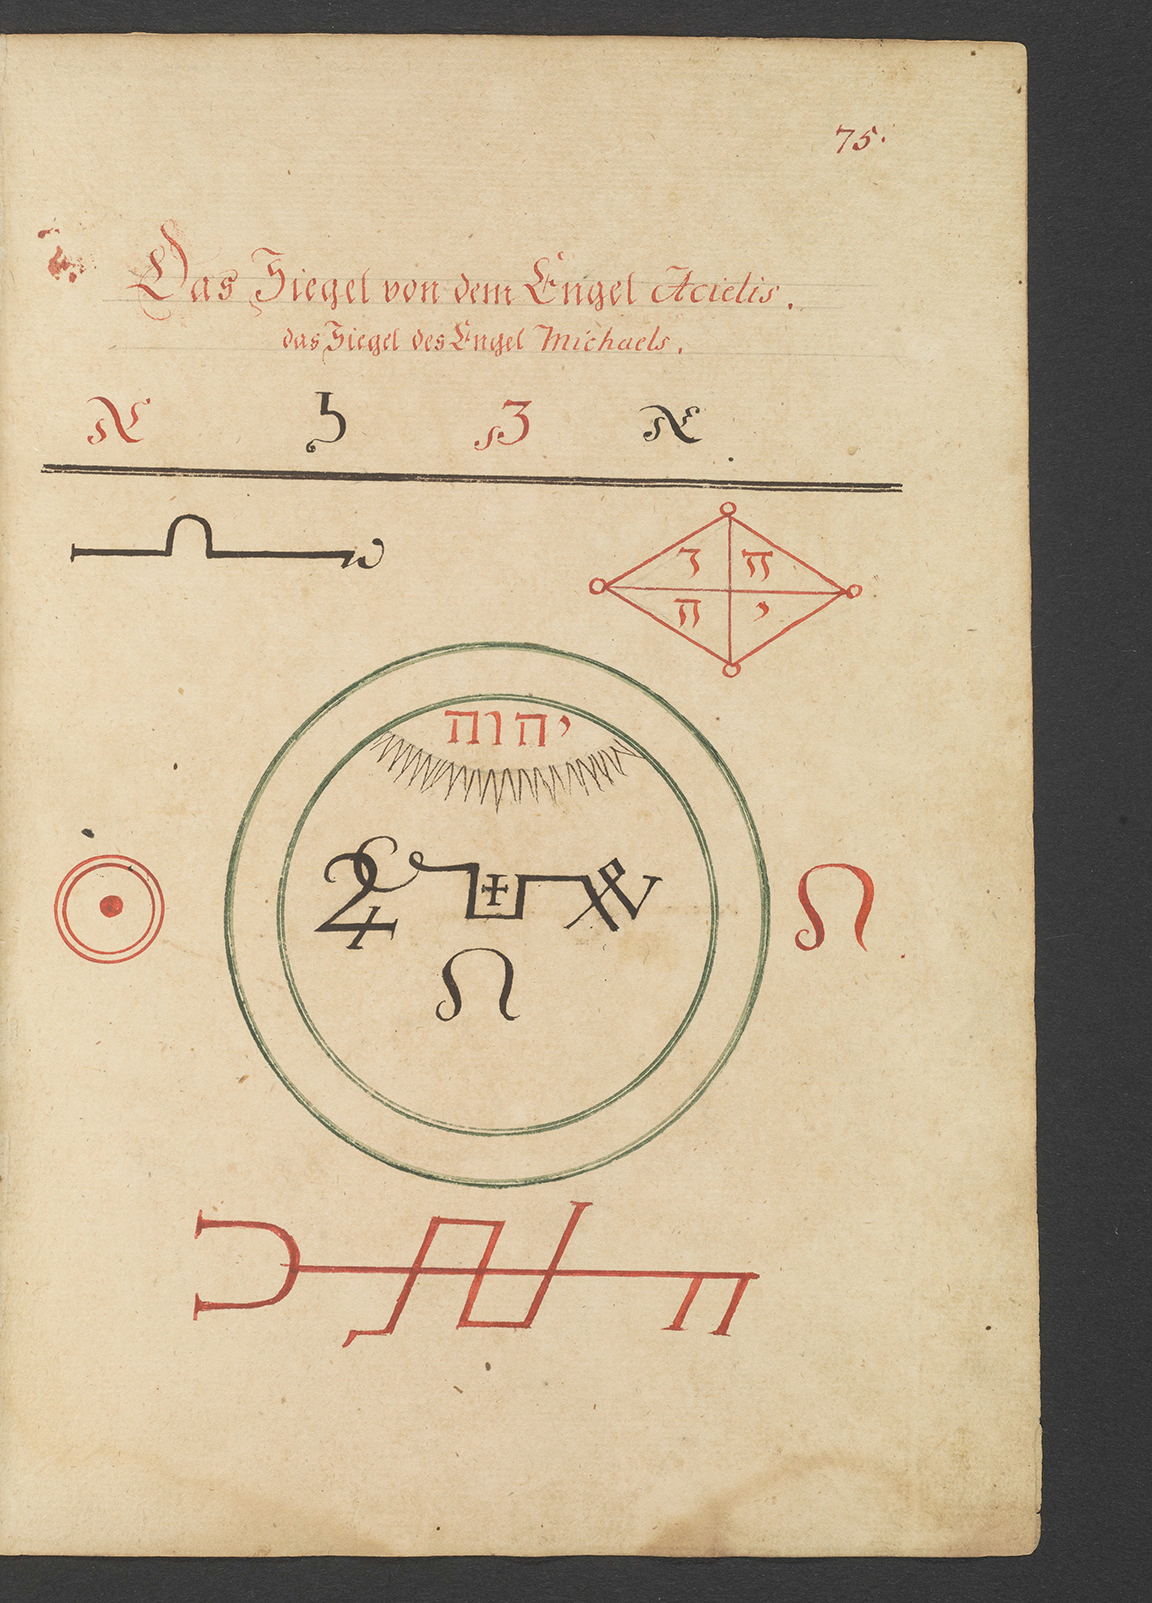 75.
Das Siegel von dem Engel Acielis.
das Siegel des Engel Michaels.
יהוה